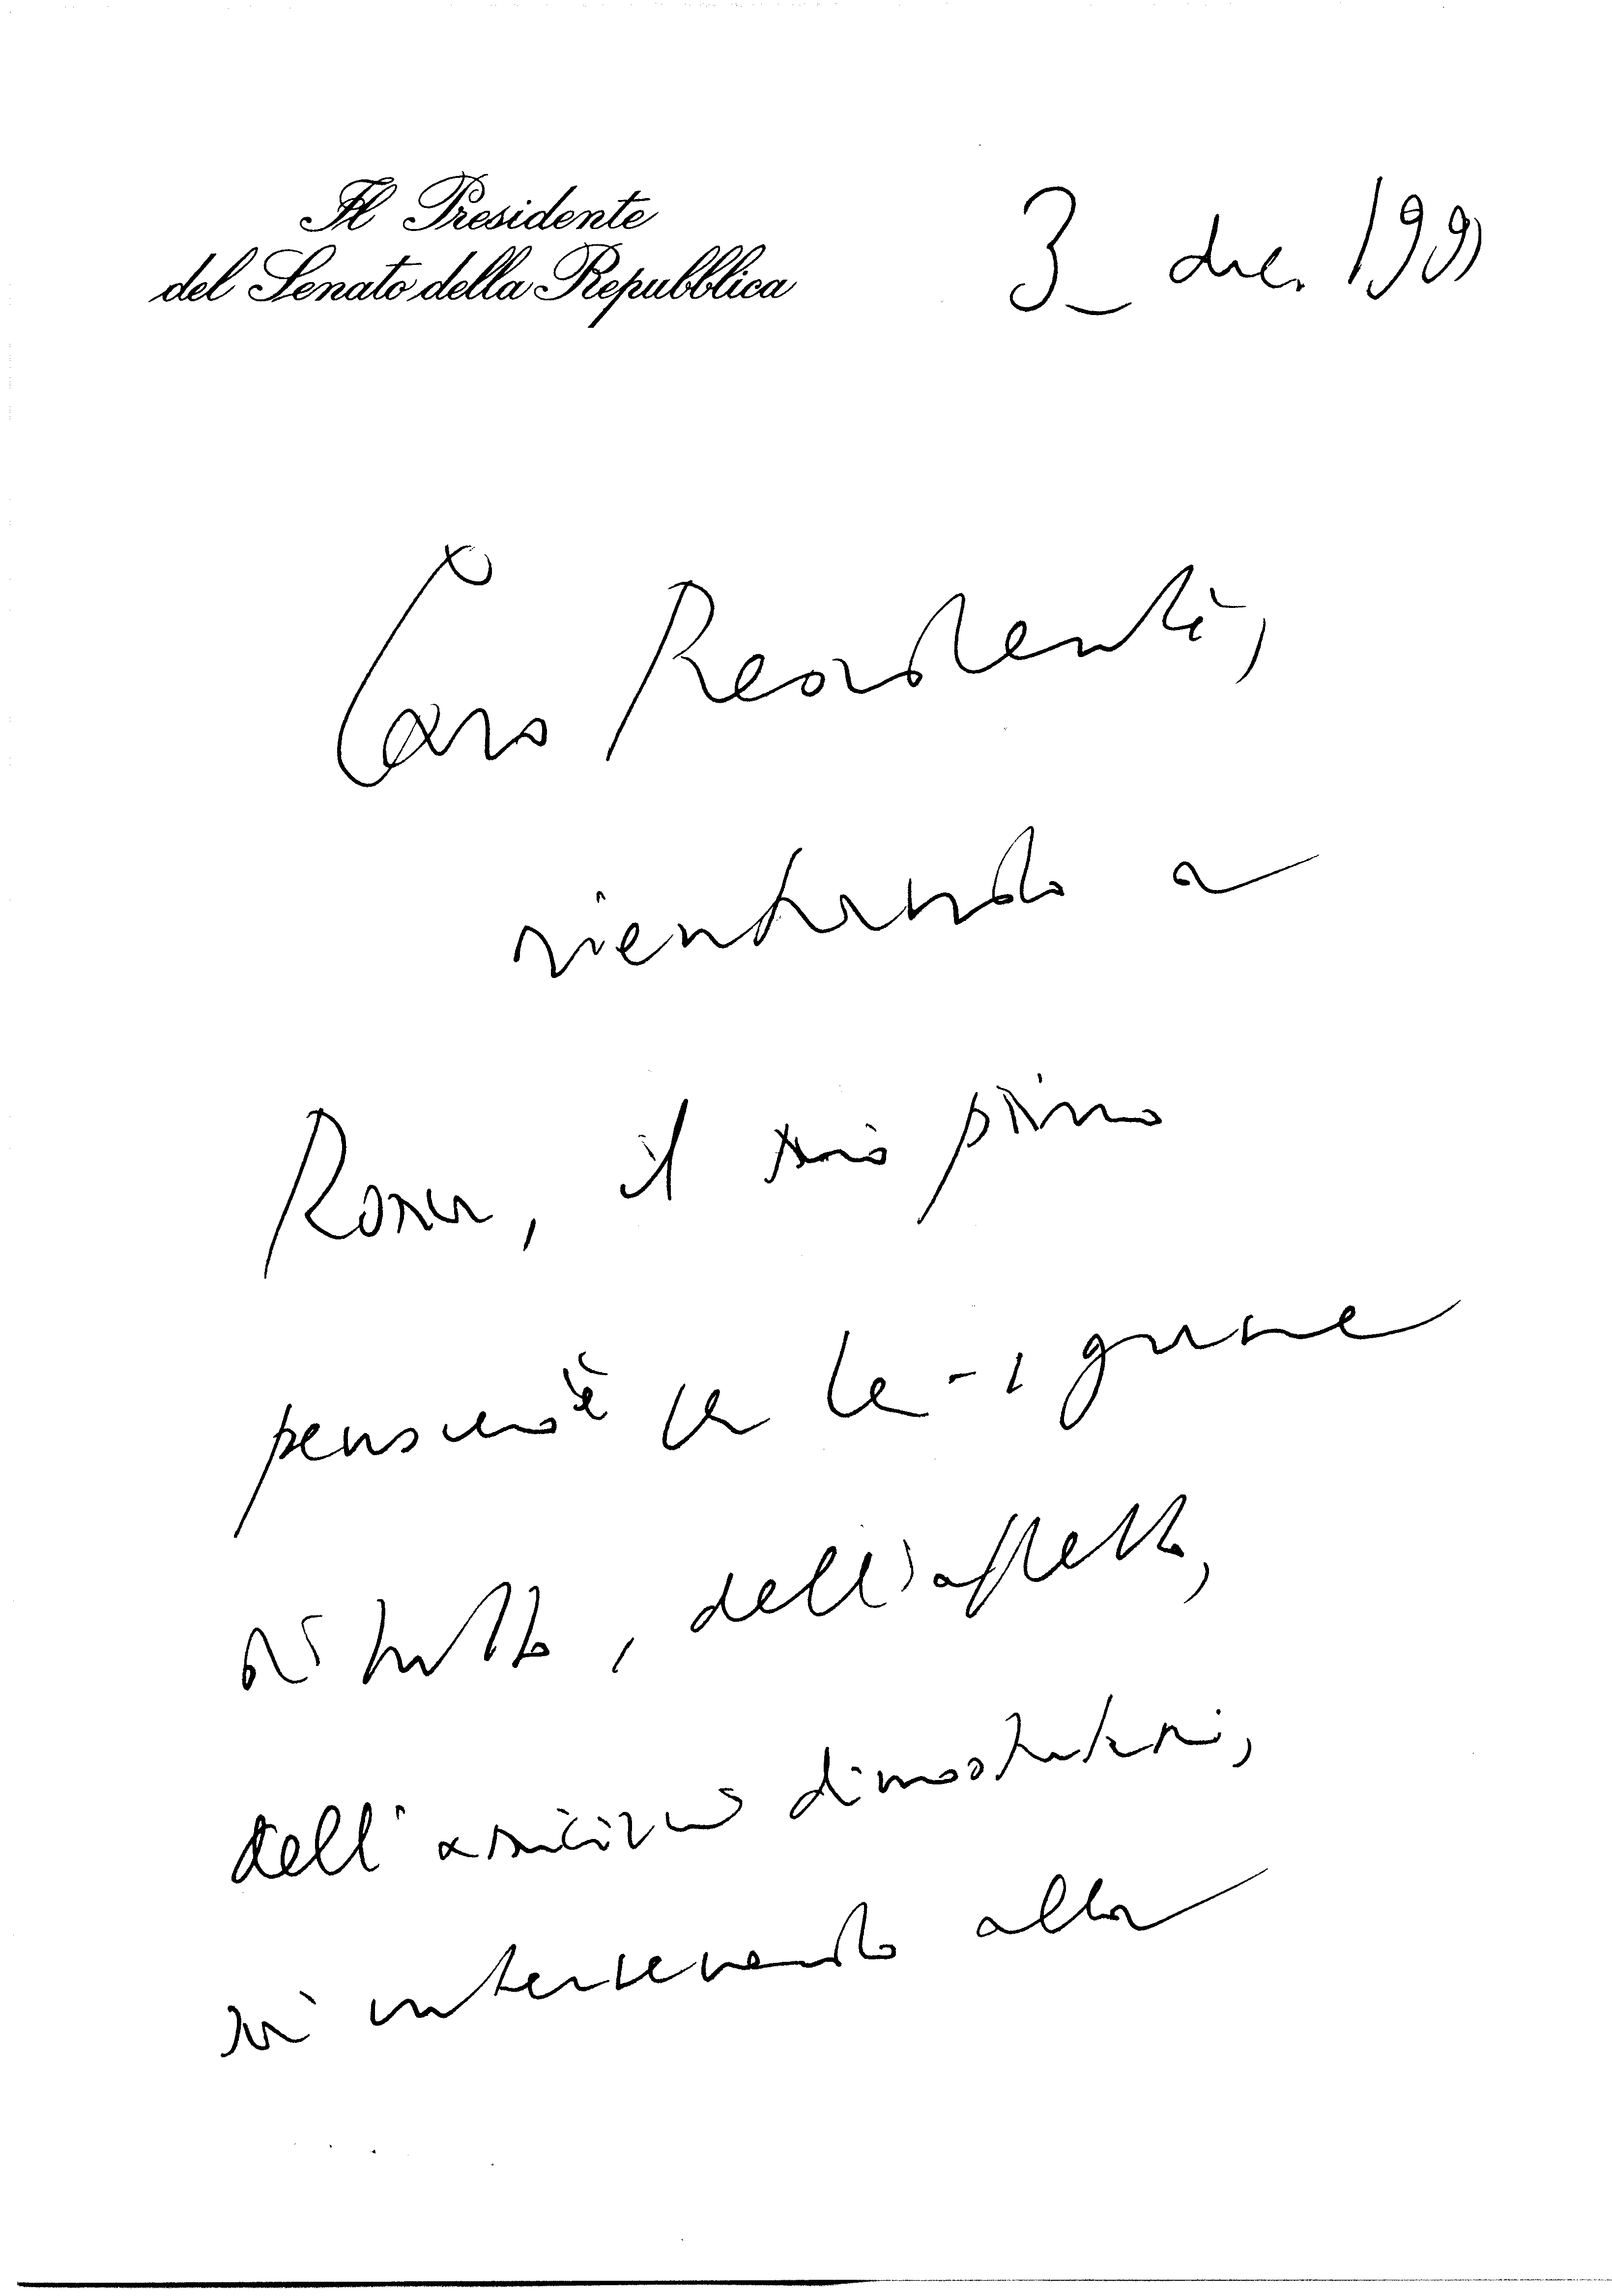 Il Presidente
del Senato della Repubblica
3 dic. 199
Caro Presidente,
rientrando a
Roma, il mio primo
pensiero è per Lei
di tutto, dell'affetto,
dell'amicizia dimostratami,
intervenendo alla